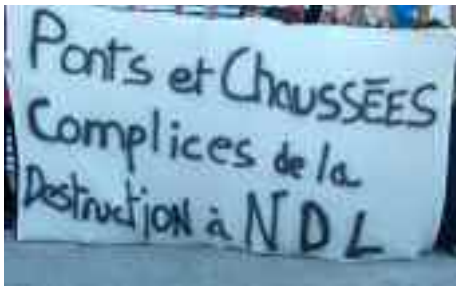 Ponts et CHAUSSÉES
Complices de la
Destruction à NDL